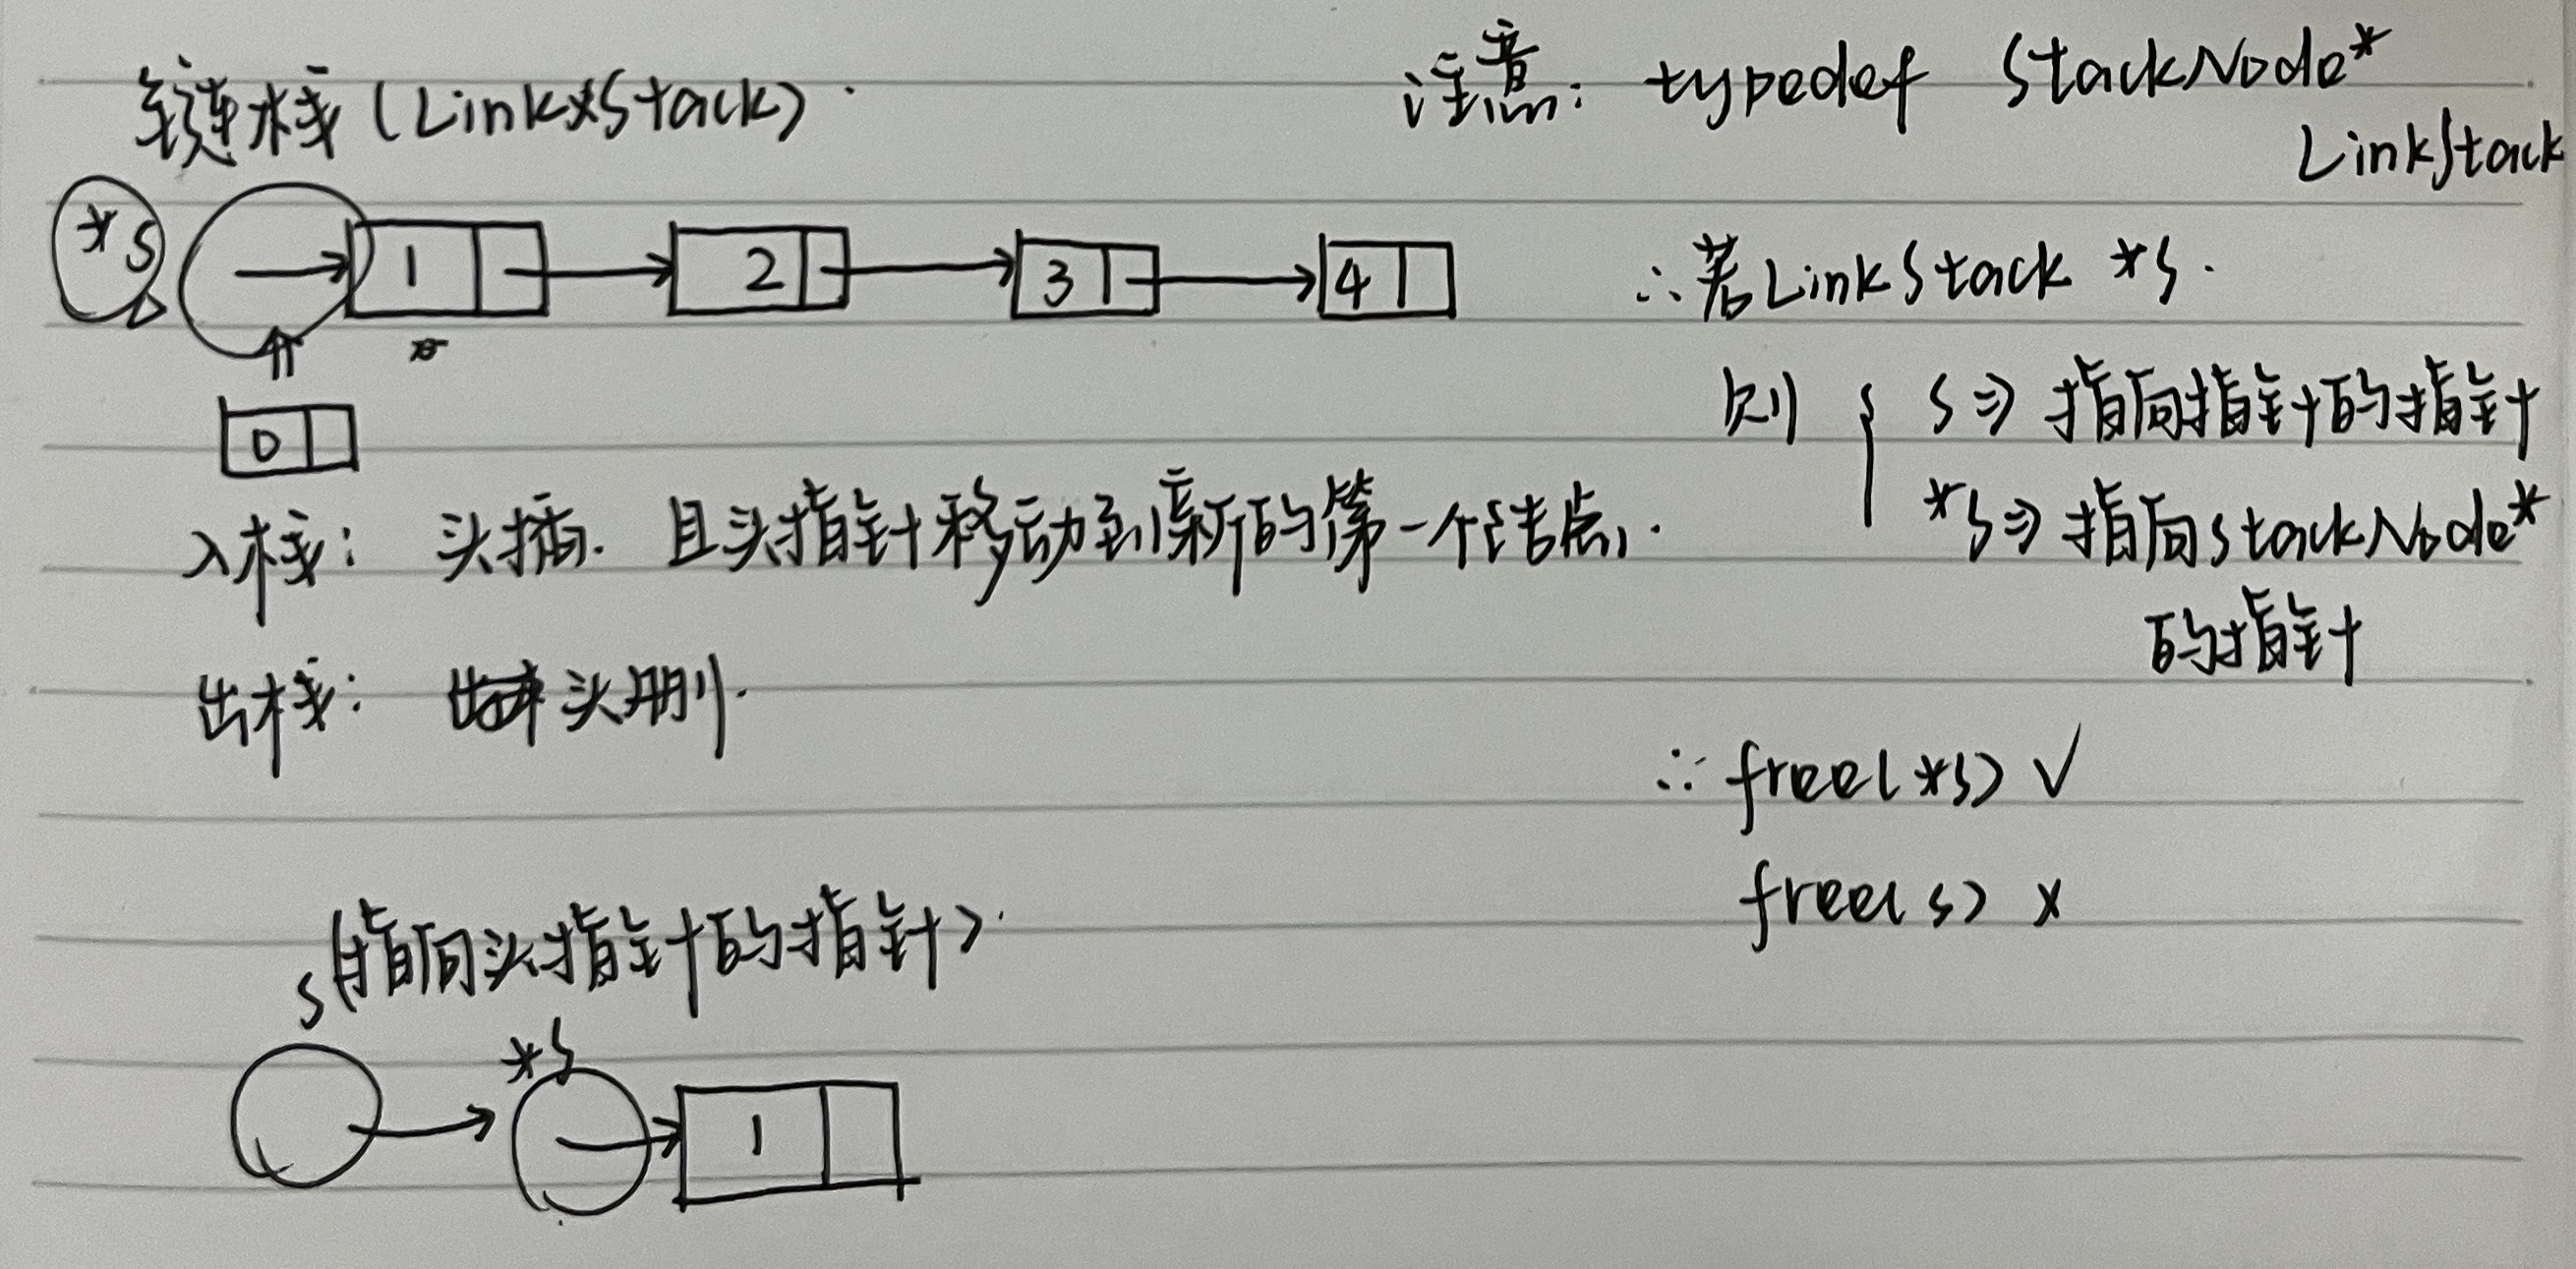 链栈(LinkStack).
*S
1 2 3 4
0
入栈: 头插. 且头指针移动到新的第一个结点.
出栈: 头删.
S(指向头指针的指针).
*S
1
注意: typedef StackNode*
LinkStack
∴若LinkStack *S.
则 { S⇒指向指针的指针
*S⇒指向StackNode*
的指针
∴ free(*S) √
free(S) ×